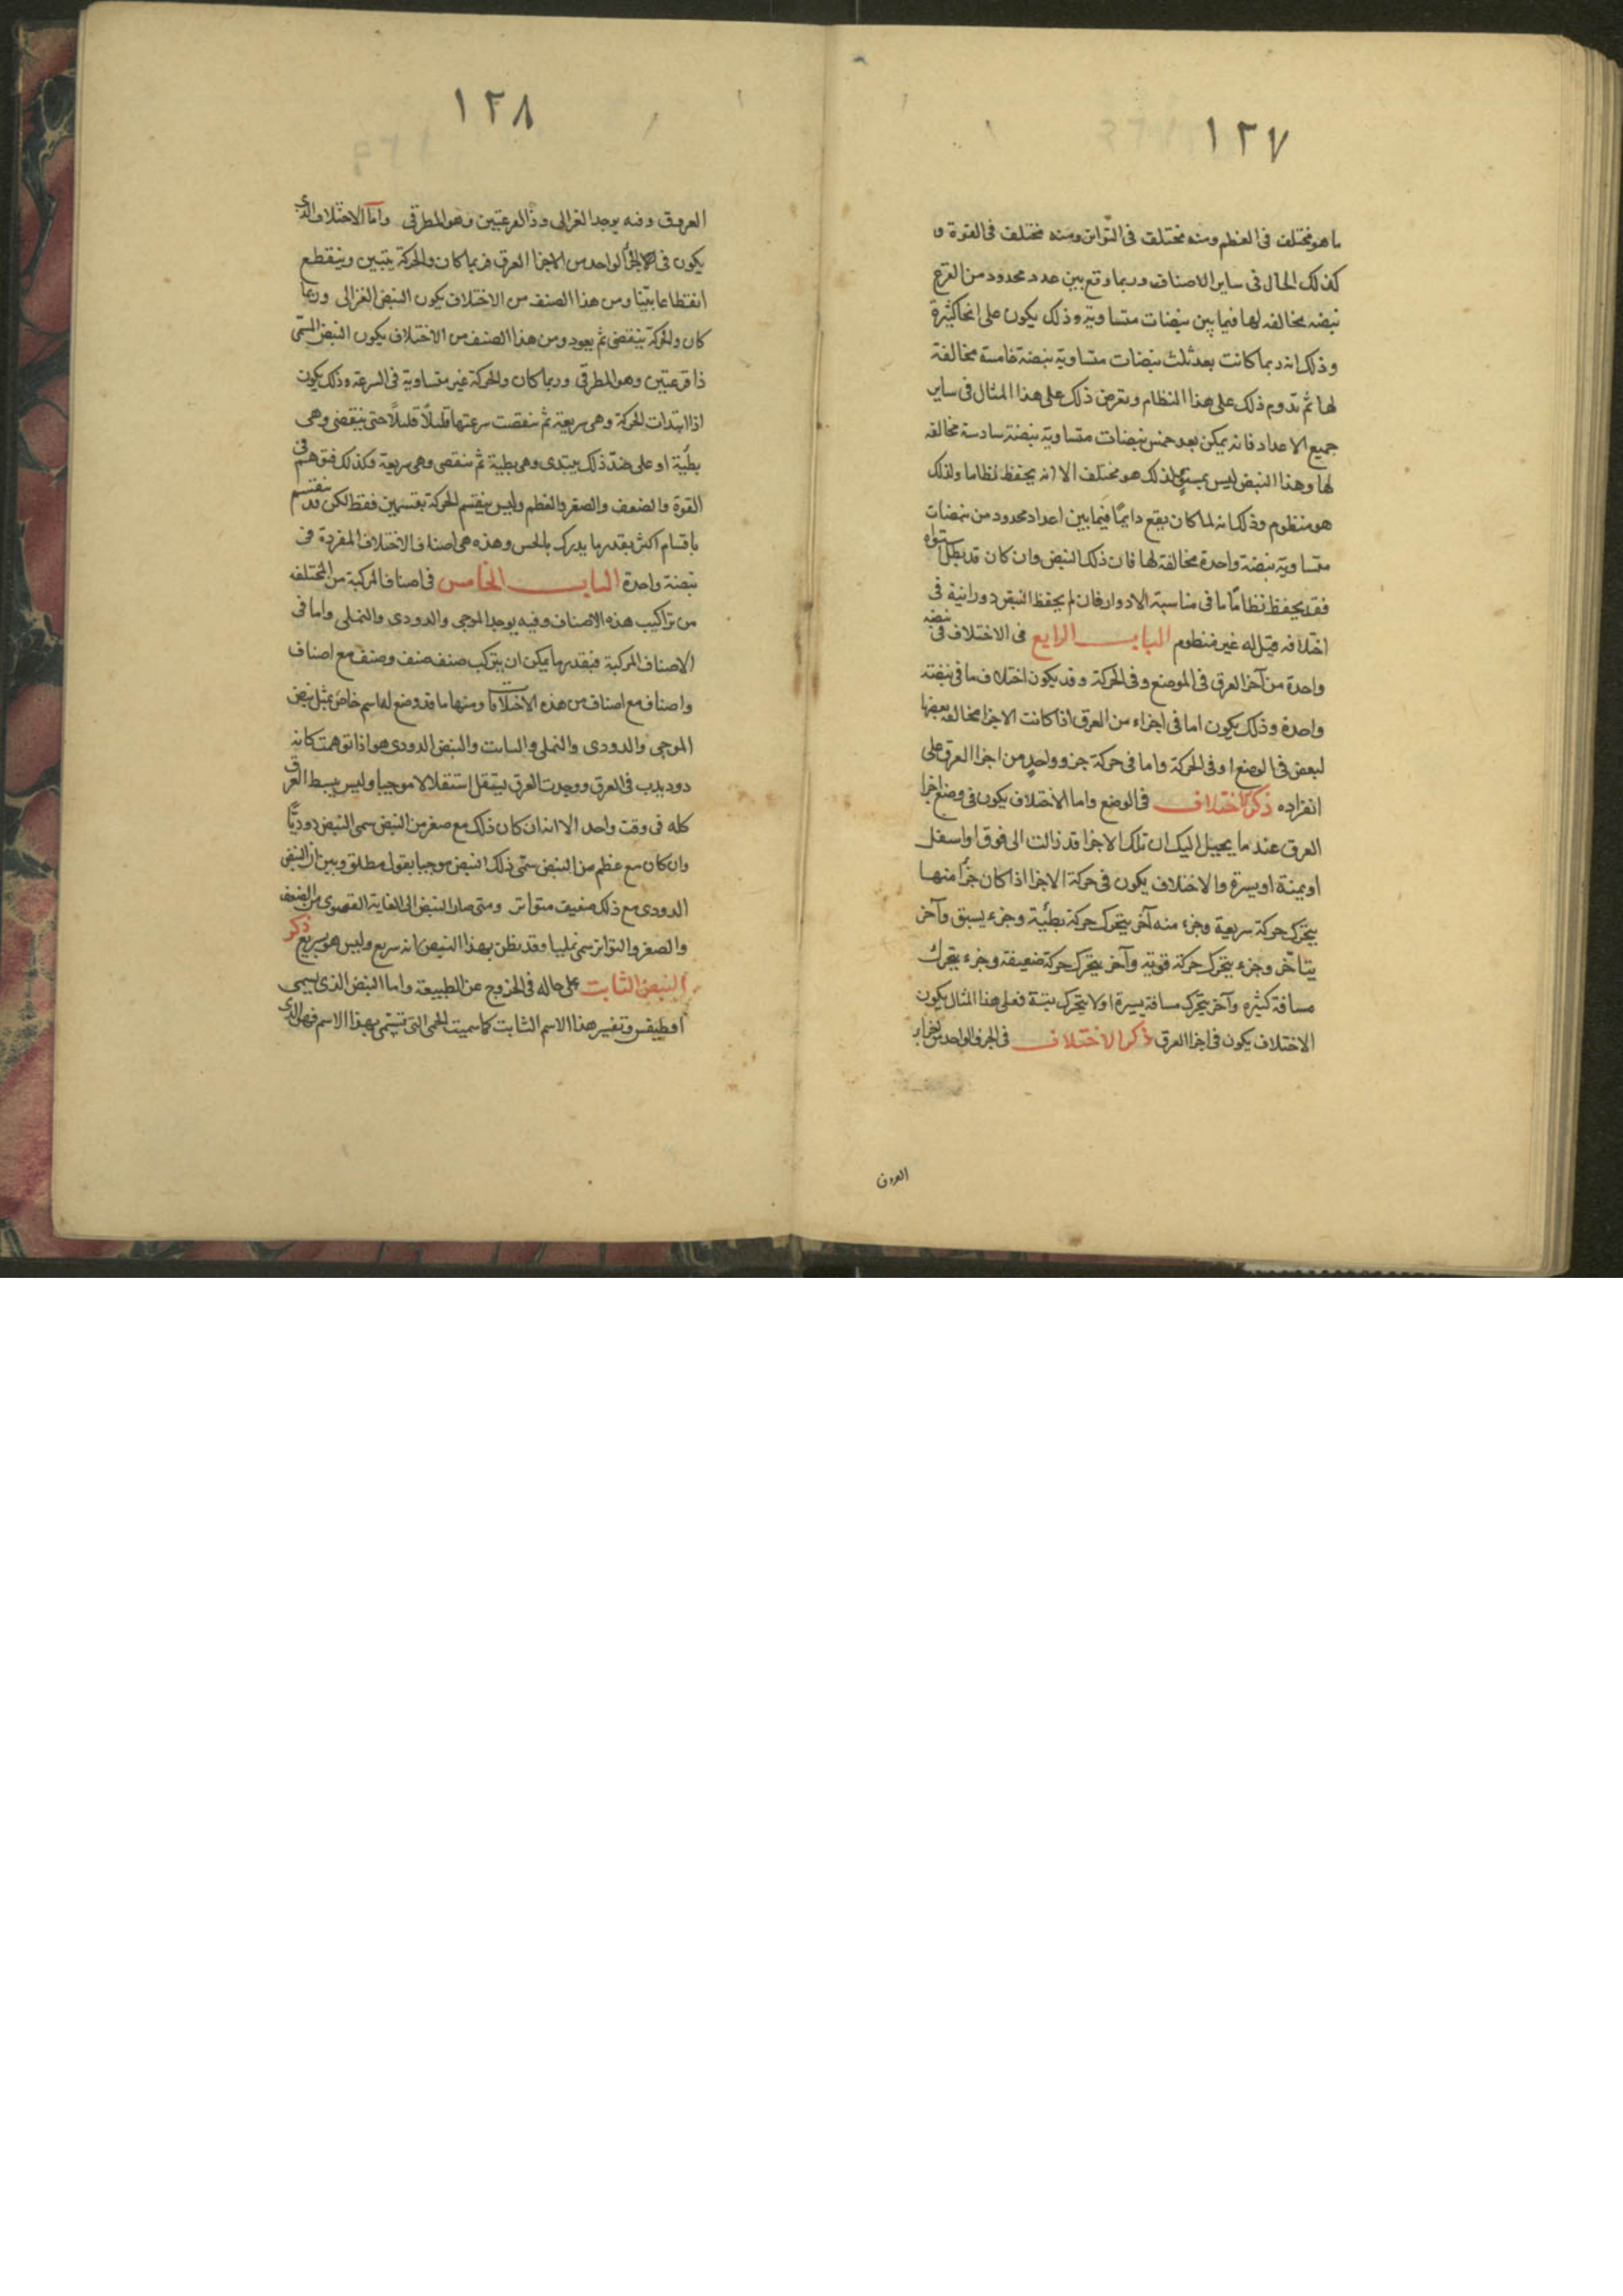 ١٢٧
ما هو مختلف فى العظم ومنه مختلف فى التواتر ومنه مختلف فى القوة و
كذلك الحال فى ساير الاصناف وربما وقع بين عدد محدود من القرع
نبضه مخالفه لها فيما بين نبضات متساوية وذلك يكون على انحا كثيرة
وذلك انه ربما كانت بعد ثلث نبضات متساوية نبضة خامسة مخالفة
لها ثم تدوم ذلك على هذا النظام وتعرض ذلك على هذا المثال فى ساير
جميع الاعداد فانه يمكن بعد خمس نبضات متساوية نبضة سادسة مخالفه
لها وهذا النبض ليس بمستوٍ لذلك هو مختلف الا انه يحفظ نظاما ولذلك
هو منظوم وذلك انه لما كان يقع دايمًا فيما بين اعداد محدود من نبضات
متساوية نبضة واحدة مخالفة لها فان ذلك النبض وان كان قد بطل استواه
فقد يحفظ نظامًا ما فى مناسبة الادوار فان لم يحفظ النبض دورانية فى
اختلافه قيل له غير منظوم الباب الرابع فى الاختلاف فى نبضه
واحدة من آخر العرق فى الموضع وفى الحركة وقد يكون اختلاف ما فى نبضة
واحدة وذلك يكون اما فى اجزاء من العرق اذا كانت الاجزا مخالفه بعضها
لبعض فى الوضع او فى الحركة واما فى حركة جزو واحدٍ من اجزا العرق على
انفراده ذكر الاختلاف فى الوضع واما الاختلاف يكون فى وضع اجزا
العرق عند ما يخيل اليك ان تلك الاجزا قد زالت الى فوق او اسفل
او يمنة او يسرة والاختلاف يكون فى حركة الاجزا اذا كان جزأ منها
يتحرك حركة سريعة وجزء منه آخر يتحرك حركة بطئية وجزء يسبق وآخر
يتاخر وجزء يتحرك حركة قوية وآخر يتحرك حركة ضعيفة وجزء يتحرك
مسافة كثيره وآخر يتحرك مسافة يسيرة او لا يتحرك بتة فعلى هذا المثال يكون
الاختلاف يكون فى اجزا العرق ذكر الاختلاف فى الجزو الواحد من
العروق
١٢٨
العروق وفيه يوجد الغزالى وذا القرعتين وهو المطرقى واما الاختلاف الذى
يكون فى الجزأ الواحد من الاجزا العرق فربما كان والحركة يتبين وينقطع
انقطاعا بيّنا ومن هذا الصنف من الاختلاف يكون النبض الغزالى وربما
كان والحركة ينقضى ثم يعود ومن هذا الصنف من الاختلاف يكون النبض المسمّى
ذا قرعتين وهو المطرقى وربما كان والحركة غير متساوية فى السرعة وذلك يكون
اذا ابتدات الحركة وهى سريعة ثم نقصت سرعتها قليلًا قليلًا حتى ينقضى وهى
بطئية او على ضدّ ذلك يبتدى وهى بطية ثم ينقضى وهى سريعة وكذلك فتوهم فى
القوة والضعف والصغر والعظم وليس ينقسم الحركة بقسمين فقط لكن قد ينقسم
باقسام اكثر بقدر ما يدرك بالحس وهذه هى اصناف الاختلاف المفردة فى
نبضة واحدة الباب الخامس فى اصناف المركبة من المختلفه
من تراكيب هذه الاصناف وفيه يوجد الموجى والدودى والنملى واما فى
الاصناف المركبة فبقدر ما يمكن ان يتركب صنف صنف وصنف مع اصناف
واصناف مع اصناف من هذه الاختلافات ومنها ما قد وضع له اسم خاص مثل نبض
الموجى والدودى والنملى والثابت والنبض الدودى هو اذا توهمت كانه
دود يدب فى العرق ووجدت العرق ينتقل استقلالا موجيا وليس يبسط العرق
كله فى وقت واحد الا انه ان كان ذلك مع صغر من النبض سمى النبض دوديًّا
وان كان مع عظم من النبض سمّى ذلك النبض موجيا بقول مطلق وبين ان النبض
الدودى مع ذلك ضعيف متواتر ومتى صار النبض الى الغاية القصوى من الضعف
والصغر والتواتر سمى نمليا وقد يظن بهذا النبض انه سريع وليس هو بسريع ذكر
النبض الثابت على حاله فى الخروج عن الطبيعة واما النبض الذى يسمى
اقطيقس وتفسير هذا الاسم الثابت كما سميت الحمى التى تسمى بهذا الاسم فهو الذى